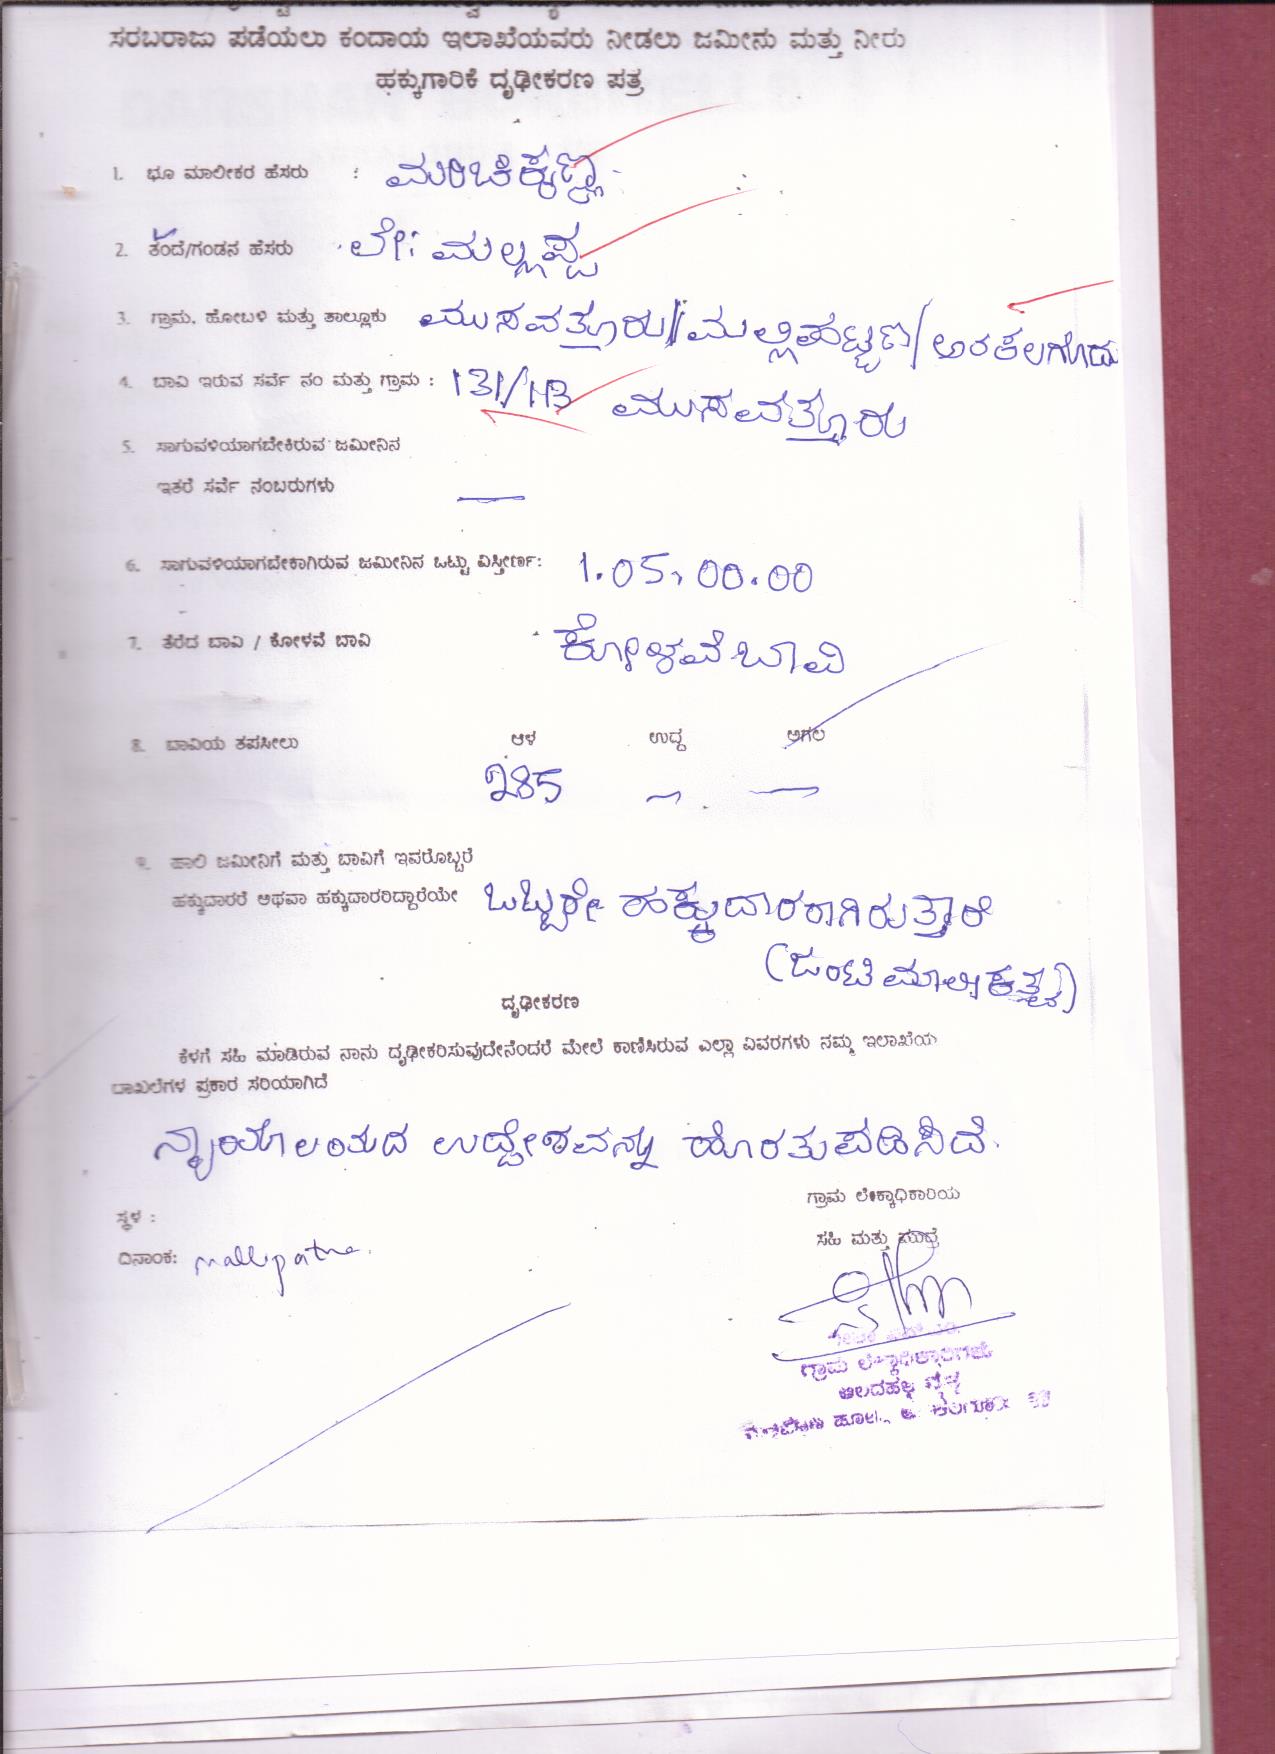 ಸರಬರಾಜು ಪಡೆಯಲು ಕಂದಾಯ ಇಲಾಖೆಯವರು ನೀಡಲು ಜಮೀನು ಮತ್ತು ನೀರು
ಹಕ್ಕುಗಾರಿಕೆ ದೃಢೀಕರಣ ಪತ್ರ
1. ಭೂ ಮಾಲೀಕರ ಹೆಸರು : ಮರಿಚಿಕ್ಕಣ್ಣ
2. ತಂದೆ/ಗಂಡನ ಹೆಸರು ಲೇ: ಮಲ್ಲಪ್ಪ
3. ಗ್ರಾಮ, ಹೋಬಳಿ ಮತ್ತು ತಾಲ್ಲೂಕು ಮುಸವತ್ತೂರು/ಮಲ್ಲಿಪಟ್ಟಣ/ಅರಕಲಗೂಡು
4. ಬಾವಿ ಇರುವ ಸರ್ವೆ ನಂ ಮತ್ತು ಗ್ರಾಮ : 131/ ಮುಸವತ್ತೂರು
5. ಸಾಗುವಳಿಯಾಗಬೇಕಿರುವ ಜಮೀನಿನ
ಇತರೆ ಸರ್ವೆ ನಂಬರುಗಳು —
6. ಸಾಗುವಳಿಯಾಗಬೇಕಾಗಿರುವ ಜಮೀನಿನ ಒಟ್ಟು ವಿಸ್ತೀರ್ಣ: 1.05.00.00
7. ತೆರೆದ ಬಾವಿ / ಕೋಳವೆ ಬಾವಿ ಕೋಳವೆ ಬಾವಿ
8. ಬಾವಿಯ ತಪಸೀಲು ಆಳ ಉದ್ದ ಅಗಲ
285 — —
9. ಹಾಲಿ ಜಮೀನಿಗೆ ಮತ್ತು ಬಾವಿಗೆ ಇವರೊಬ್ಬರೆ
ಹಕ್ಕುದಾರರೆ ಅಥವಾ ಹಕ್ಕುದಾರರಿದ್ದಾರೆಯೇ ಒಬ್ಬರೇ ಹಕ್ಕುದಾರರಾಗಿರುತ್ತಾರೆ
(ಜಂಟಿ ಮಾಲೀಕತ್ವ)
ದೃಢೀಕರಣ
ಕೆಳಗೆ ಸಹಿ ಮಾಡಿರುವ ನಾನು ದೃಢೀಕರಿಸುವುದೇನೆಂದರೆ ಮೇಲೆ ಕಾಣಿಸಿರುವ ಎಲ್ಲಾ ವಿವರಗಳು ನಮ್ಮ ಇಲಾಖೆಯ
ದಾಖಲೆಗಳ ಪ್ರಕಾರ ಸರಿಯಾಗಿದೆ
ಉದ್ದೇಶವನ್ನು ಹೊರತುಪಡಿಸಿದೆ.
ಗ್ರಾಮ ಲೆಕ್ಕಾಧಿಕಾರಿಯ
ಸ್ಥಳ :
ಸಹಿ ಮತ್ತು ಮುದ್ರೆ
ದಿನಾಂಕ: mallipatna.
ಗ್ರಾಮ ಲೆಕ್ಕಾಧಿಕಾರಿಗಳು